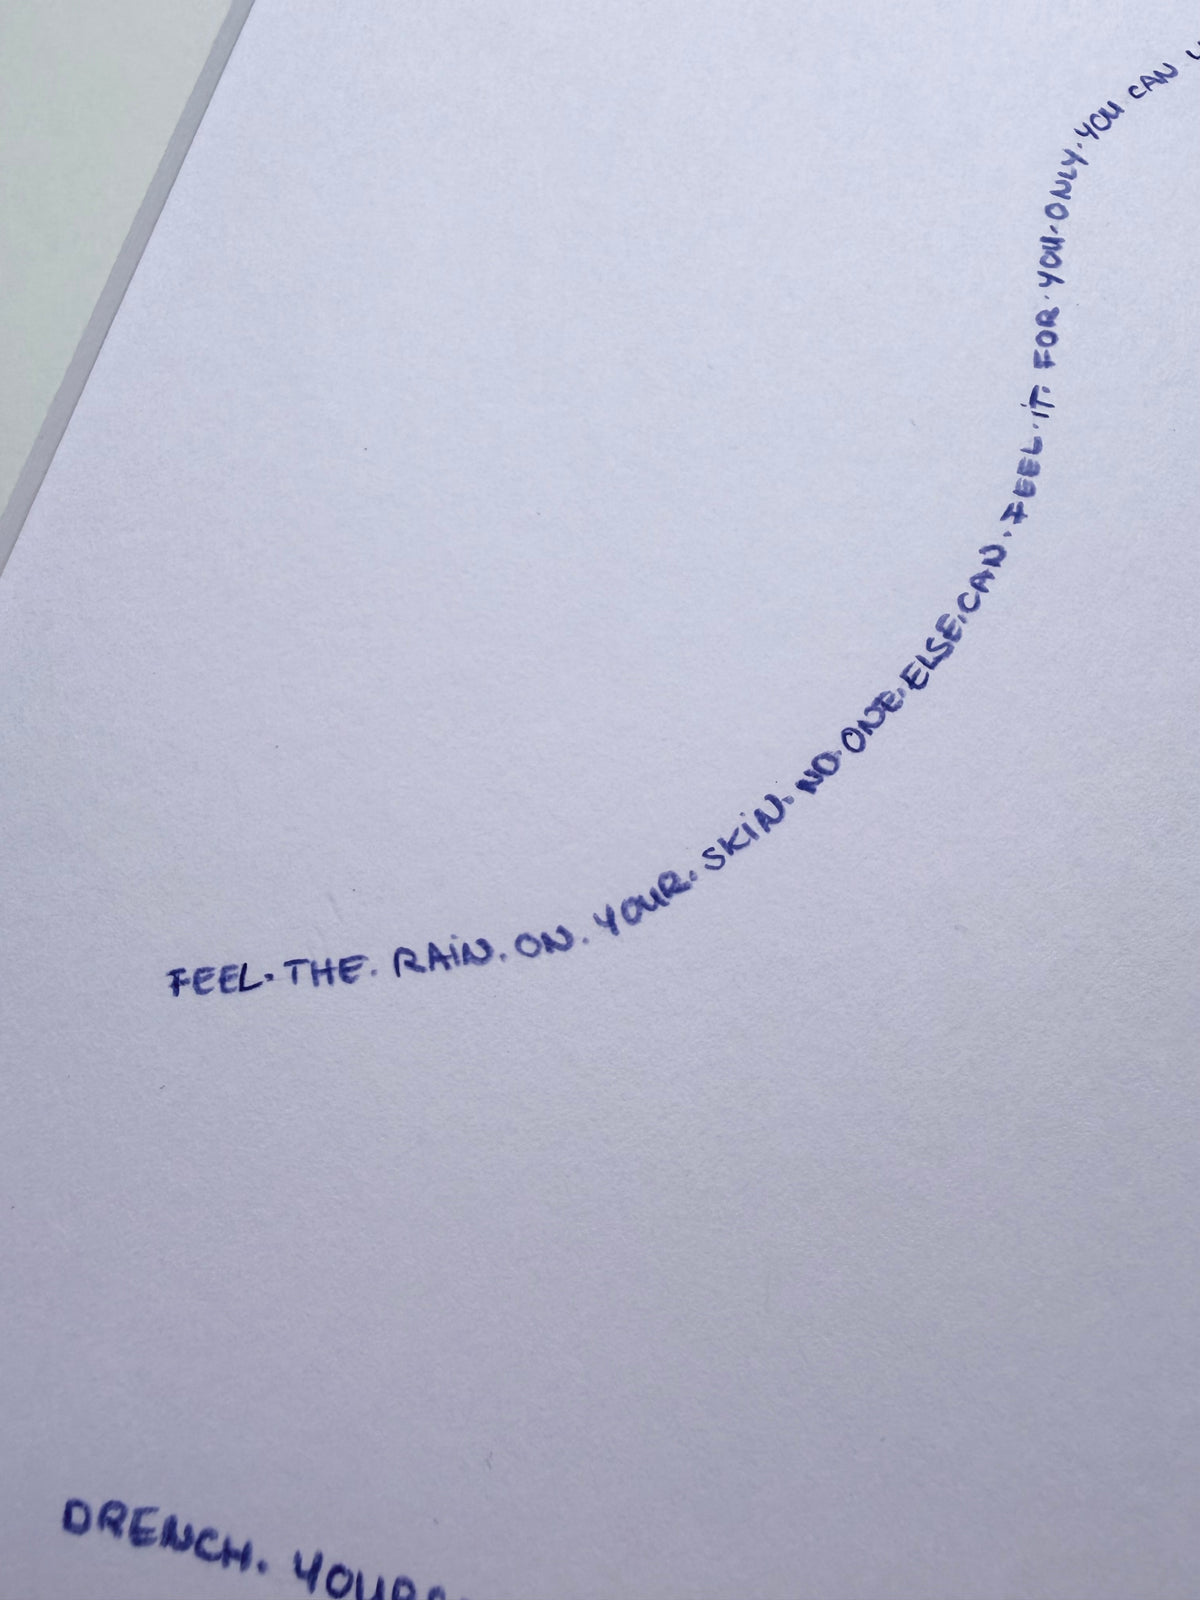 FEEL. THE. RAiN. ON. YOUR. SKiN. NO. ONE. ELSE. CAN. FEEL. iT. FOR. YOU. ONLY. YOU CAN
DRENCH.